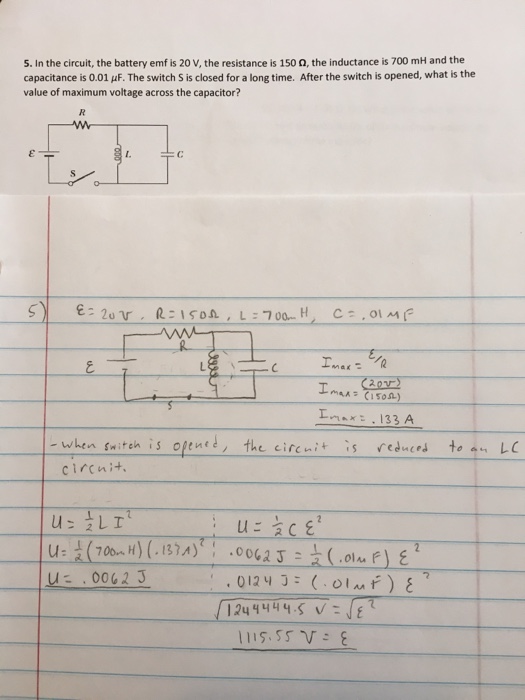 5. In the circuit, the battery emf is 20 V, the resistance is 150 Ω, the inductance is 700 mH and the
capacitance is 0.01 μF. The switch S is closed for a long time. After the switch is opened, what is the
value of maximum voltage across the capacitor?
R
ε L C
S
5) ε = 20 V, R = 150Ω, L = 700m H, C = .01 MF
R
ε L C
S
Imax = ε/R
Imax = (20V)/(150Ω)
Imax = .133 A
- When switch is opened, the circuit is reduced to an LC
circuit.
U = ½ L I²
U = ½ (700mH) (.133A)²
U = .0062 J
U = ½ C ε²
.0062 J = ½ (.01mF) ε²
.0124 J = (.01mF) ε²
√1244444.5 V = √ε²
1115.55 V = ε